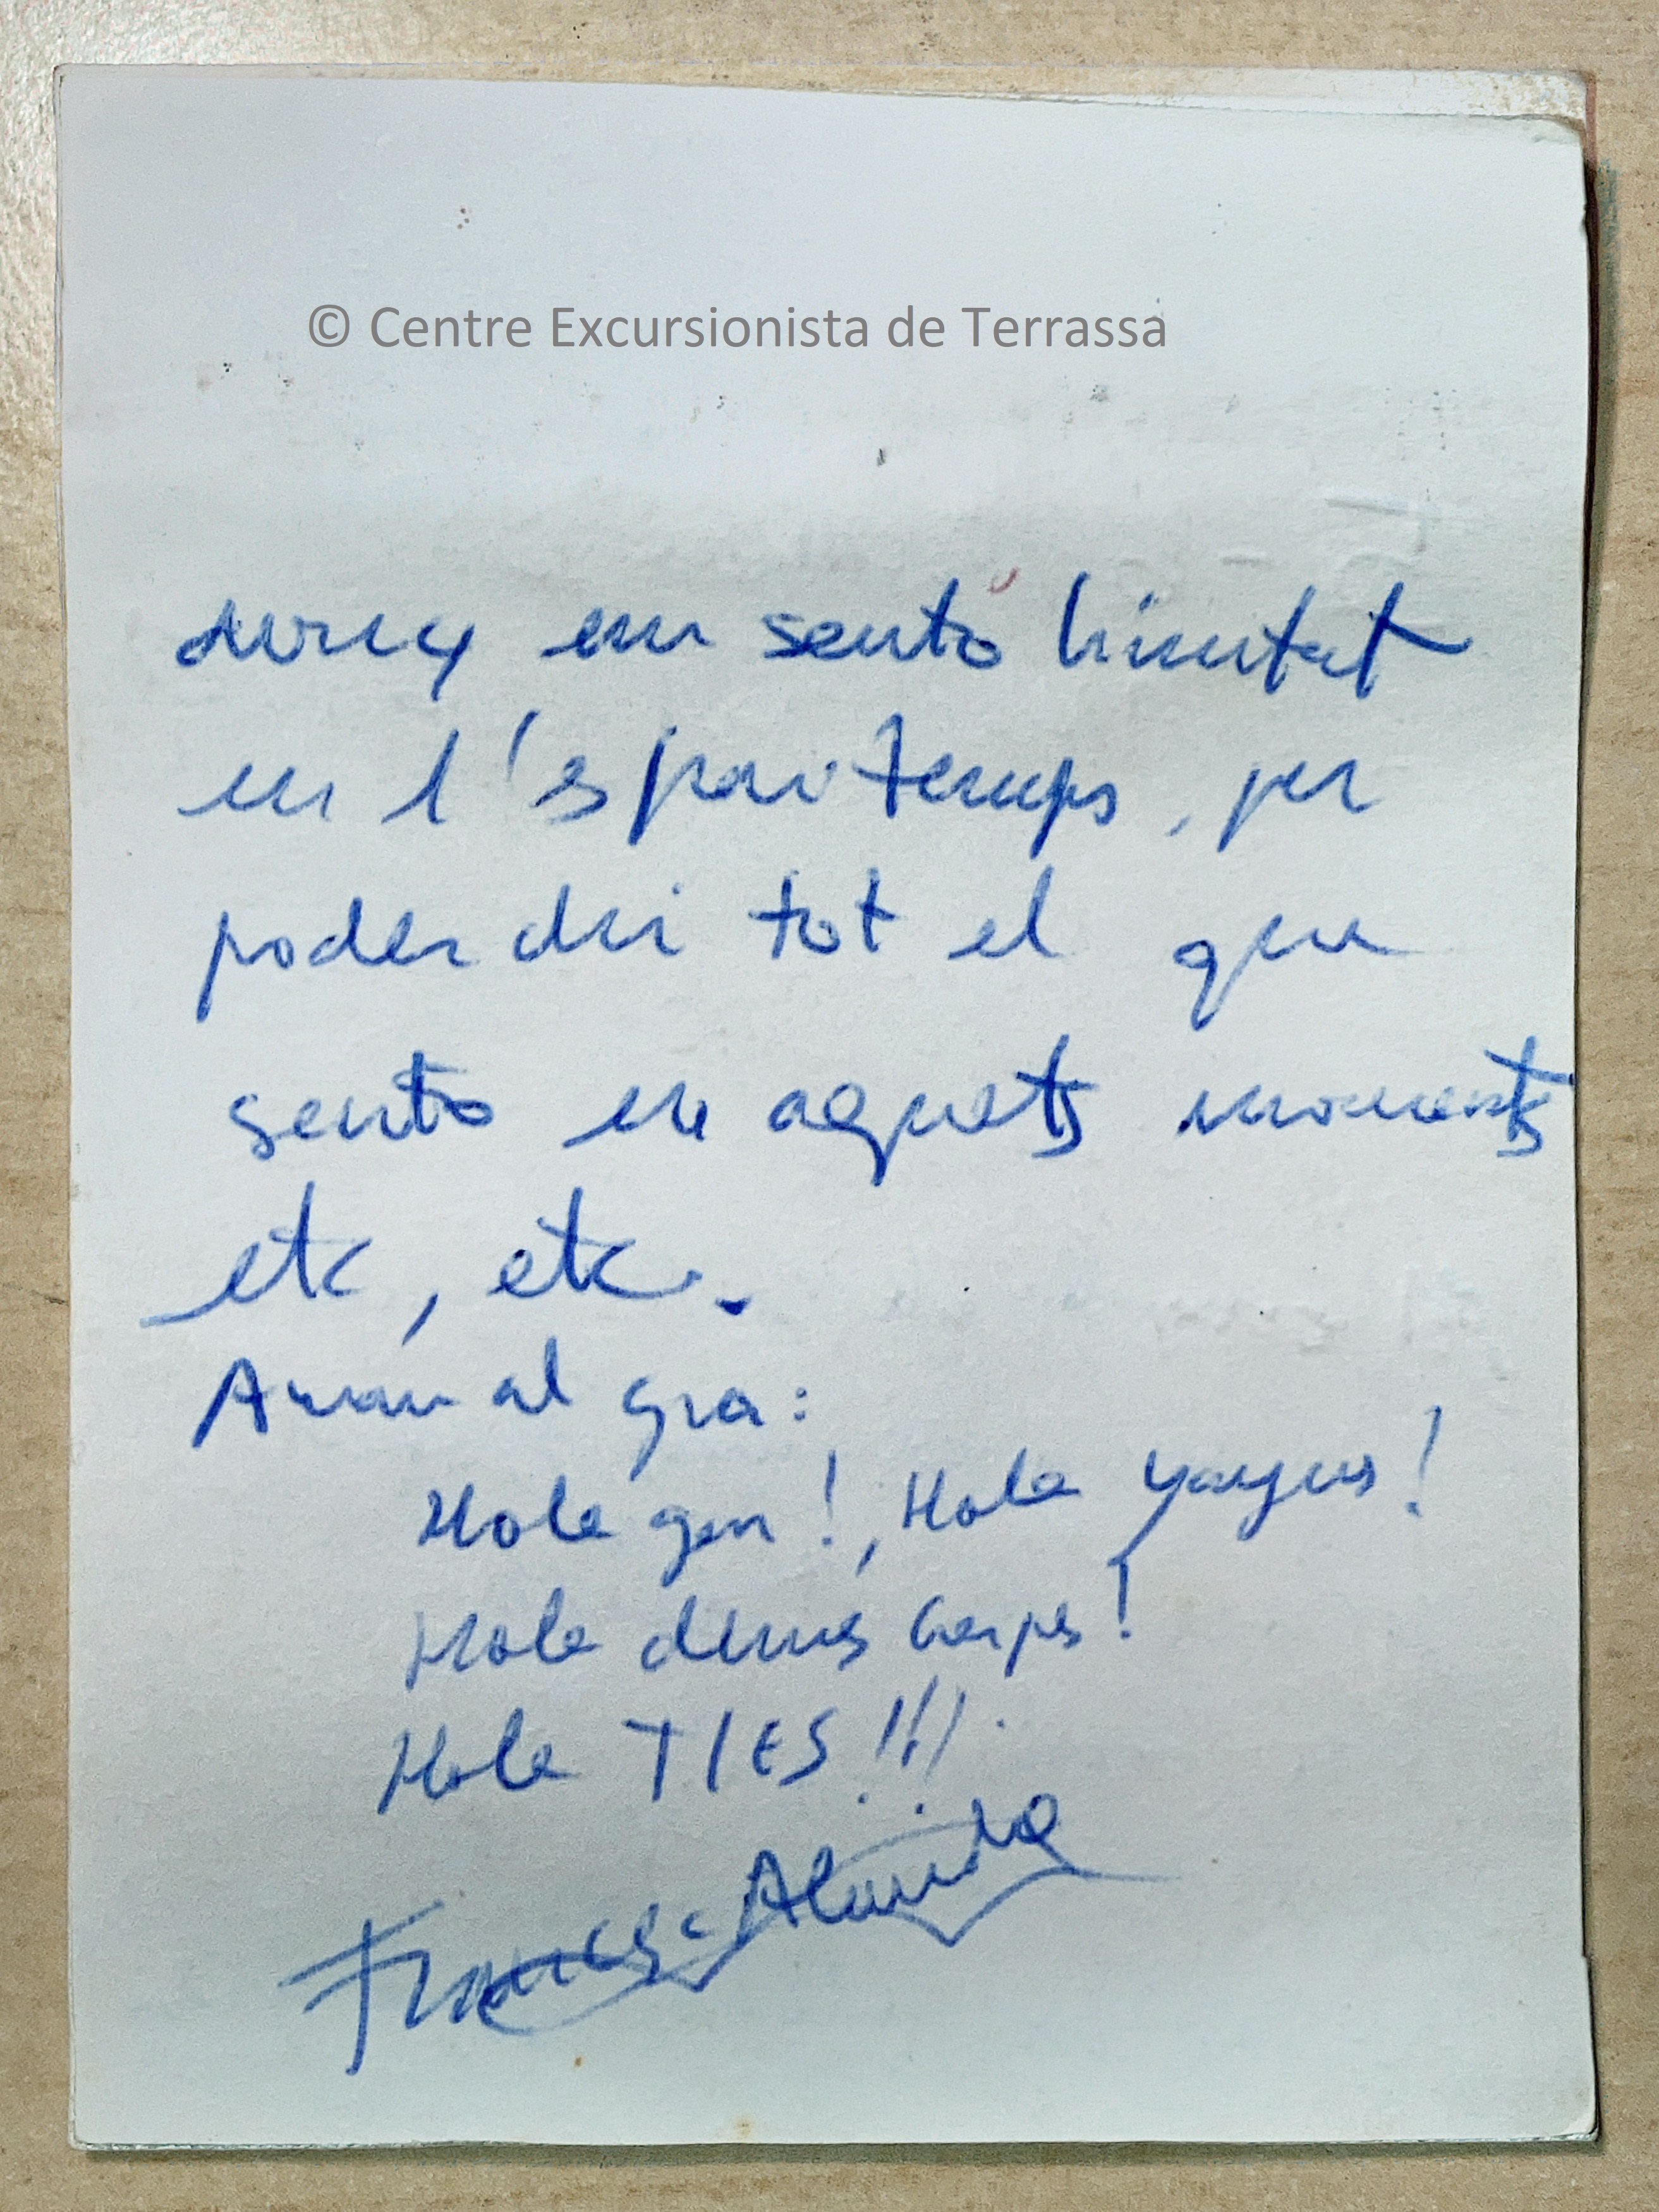 © Centre Excursionista de Terrassa
em sento limitat
en l'espai temps, per
poder dir tot el que
sento en aquets moments
etc, etc.
Anam al gra:
Hola gen!, Hola yayus!
Hola demés
Hola TIES!!!
Francesc